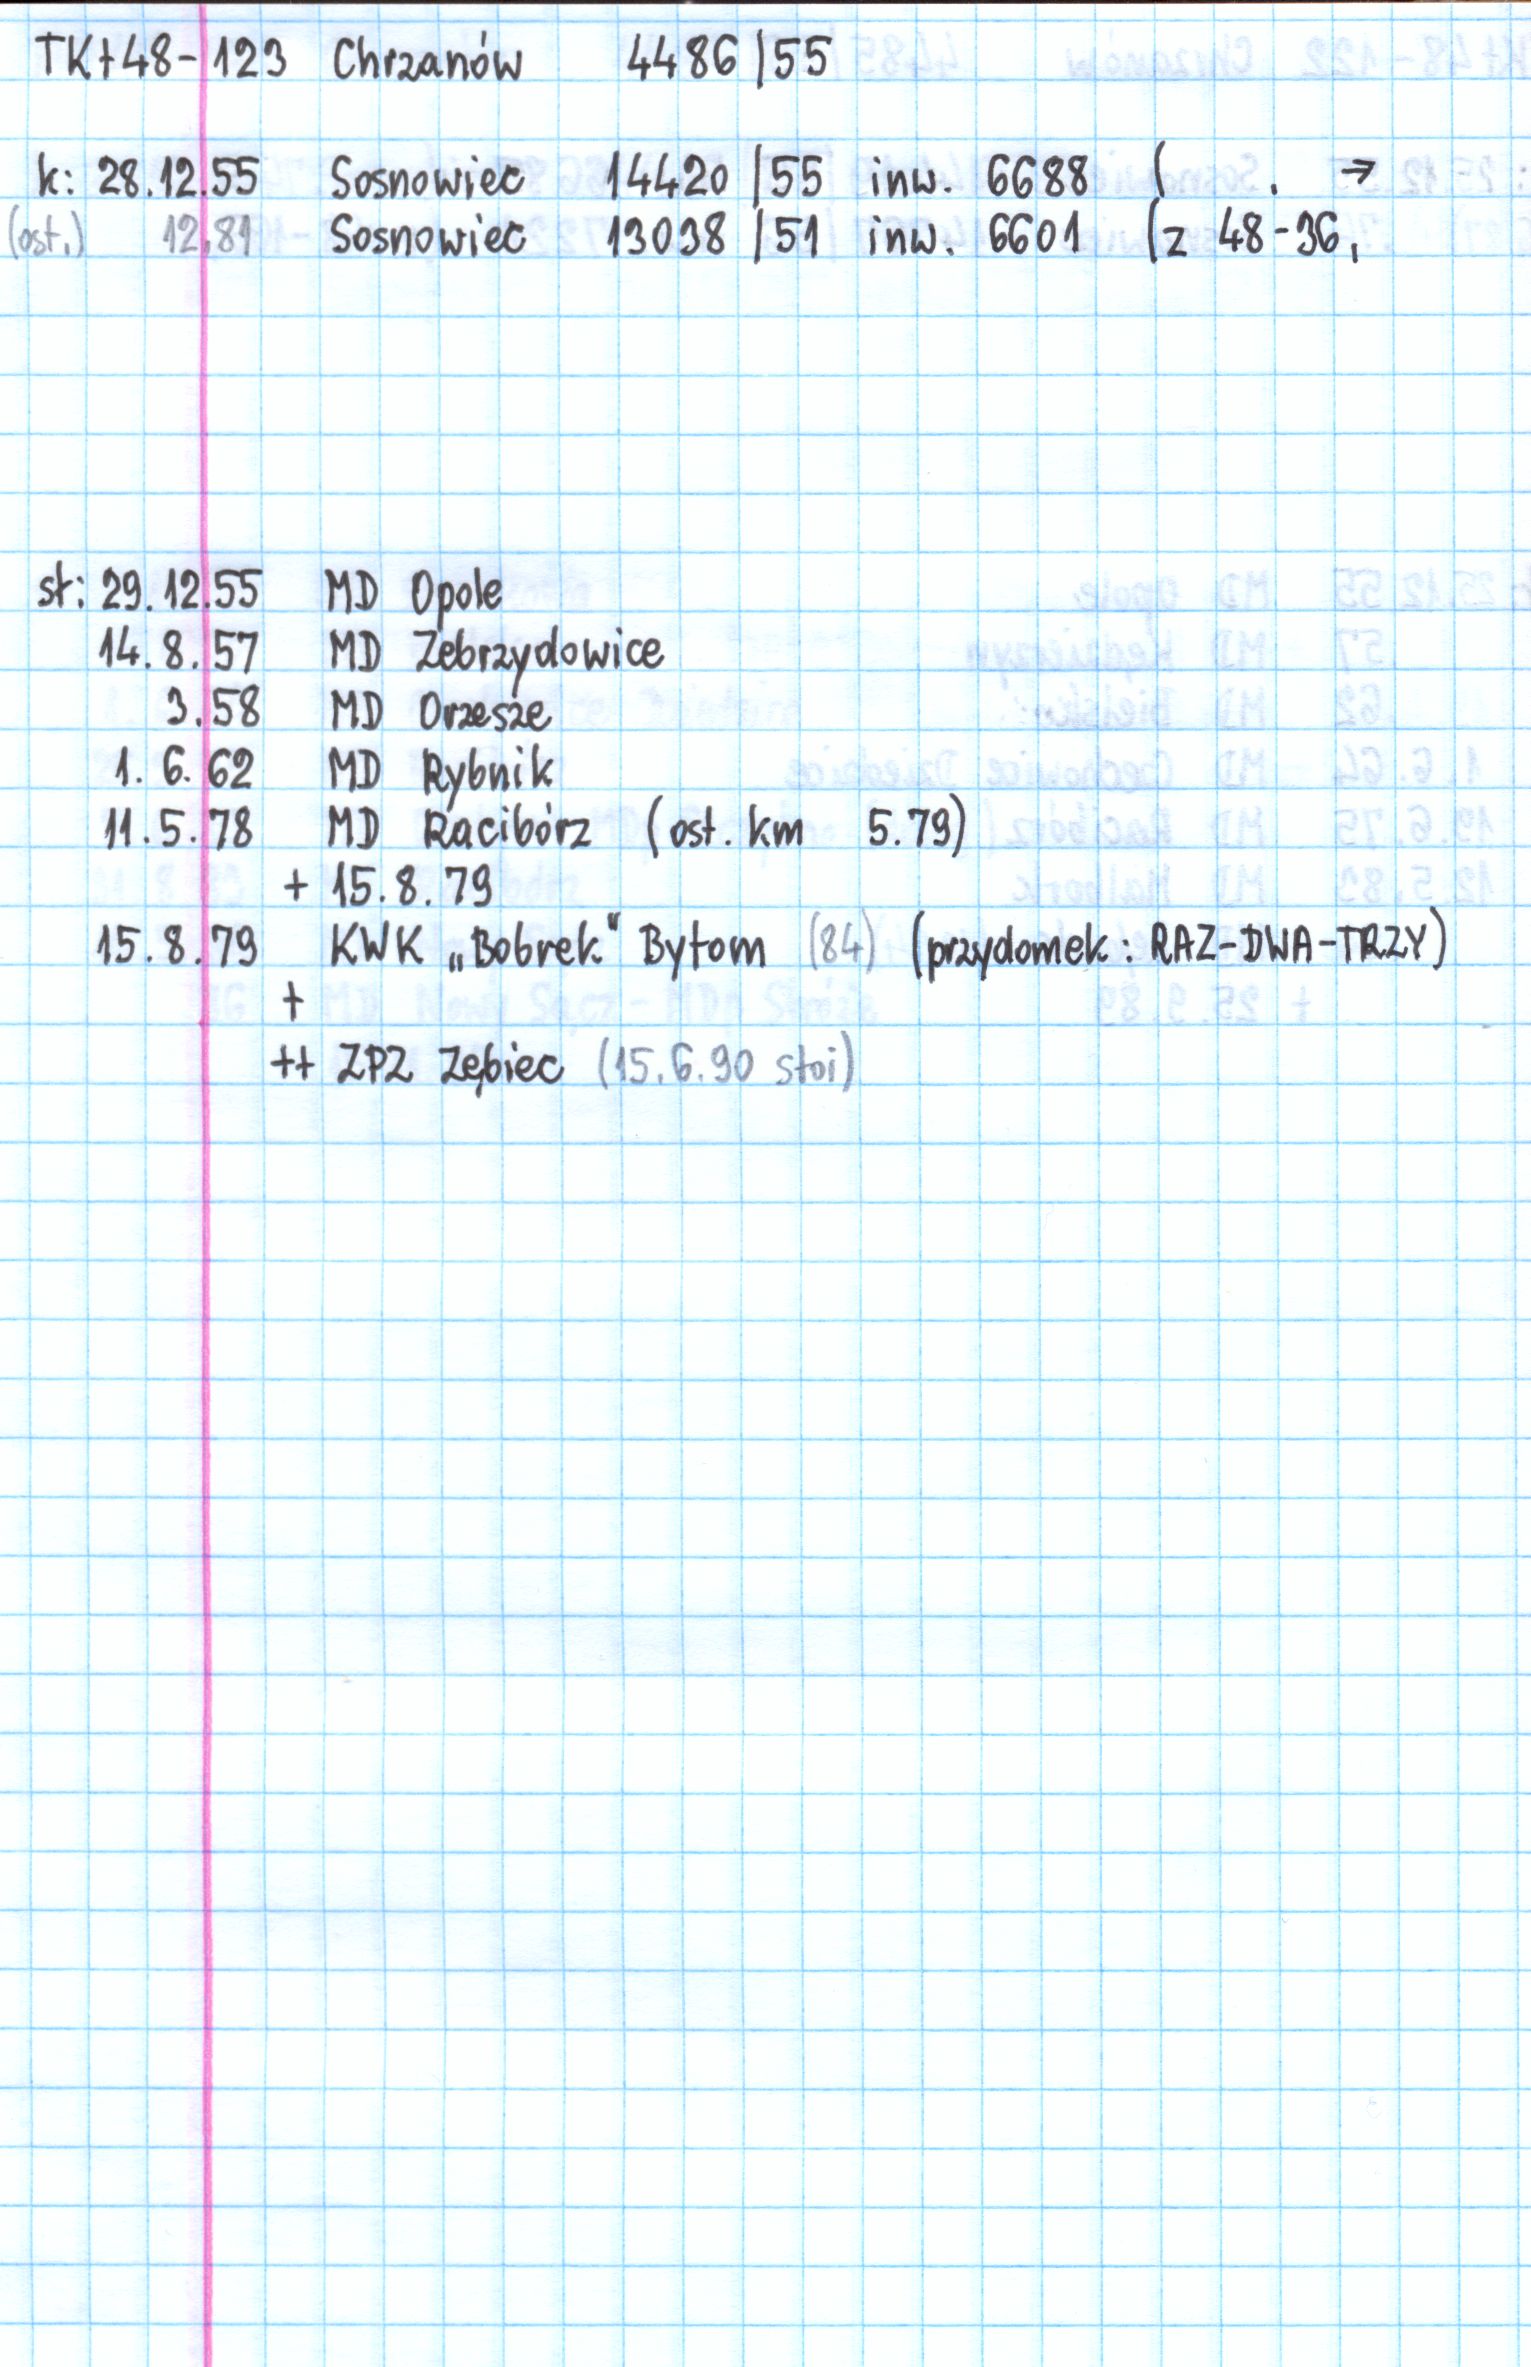 TKt48-123 Chrzanów 4486/55
k: 28.12.55 Sosnowiec 14420/55 inw. 6688 ( . →
(ost.) 12.81 Sosnowiec 13038/51 inw. 6601 (z 48-36,
st: 29.12.55 MD Opole
14.8.57 MD Zebrzydowice
3.58 MD Orzesze
1.6.62 MD Rybnik
11.5.78 MD Racibórz (ost. km 5.79)
+ 15.8.79
15.8.79 KWK „Bobrek" Bytom (84) (przydomek: RAZ-DWA-TRZY)
+
++ ZPZ Zębiec (15.6.90 stoi)